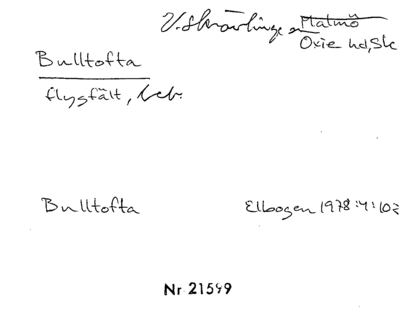 V. Skrävlinge sn Malmö
Oxie hd, Sk
Bulltofta
flygfält, beb.
Bulltofta
Elbogen 1978:4:102
Nr 21599